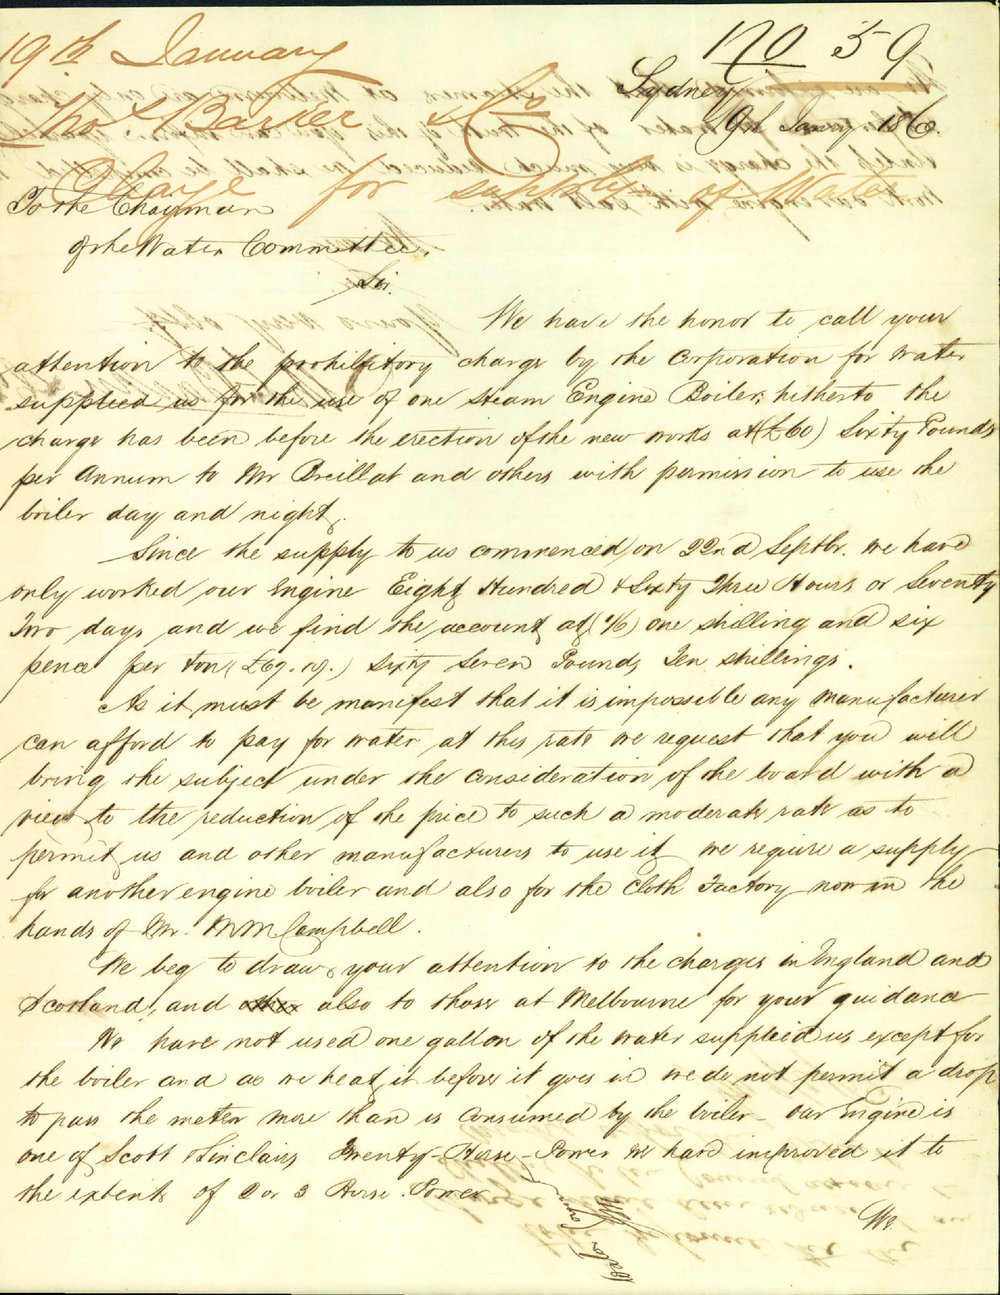 19th January
No 59
Thos. Barker & Co
Sydney
19th Janry 1860.
Charge for supply of Water
To the Chayman
of the Water Committee.
Sir.
We have the honor to call your
attention to the prohibitory charge by the Corporation for Water
supplied us for the use of one Steam Engine Boiler; hitherto the
charge has been before the erection of the new works at (£60) Sixty Pounds
per Annum to Mr Breillat and others with permission to use the
boiler day and night.
Since the supply to us commenced on 22nd Septbr. we have
only worked our Engine Eight Hundred & Sixty Three Hours or Seventy
Two days and we find the account at (1/6) one shilling and six
pence per ton (£67.10.) Sixty Seven Pounds Ten shillings.
As it must be manifest that it is impossible any Manufacturer
can afford to pay for water at this rate we request that you will
bring the subject under the consideration of the board with a
view to the reduction of the price to such a moderate rate as to
permit us and other manufacturers to use it we require a supply
for another engine boiler and also for the Cloth Factory now in the
hands of Mr. Campbell.
We beg to draw your attention to the charges in England and
Scotland, and also to those at Melbourne for your guidance
We have not used one gallon of the water supplied us except for
the boiler and as we heat it before it goes in we do not permit a drop
to pass the meter more than is consumed by the boiler - our Engine is
one of Scott & Sinclairs Twenty-Horse-Power we have improved it to
the extent of 2 or 3 Horse. Power
We
Water Com